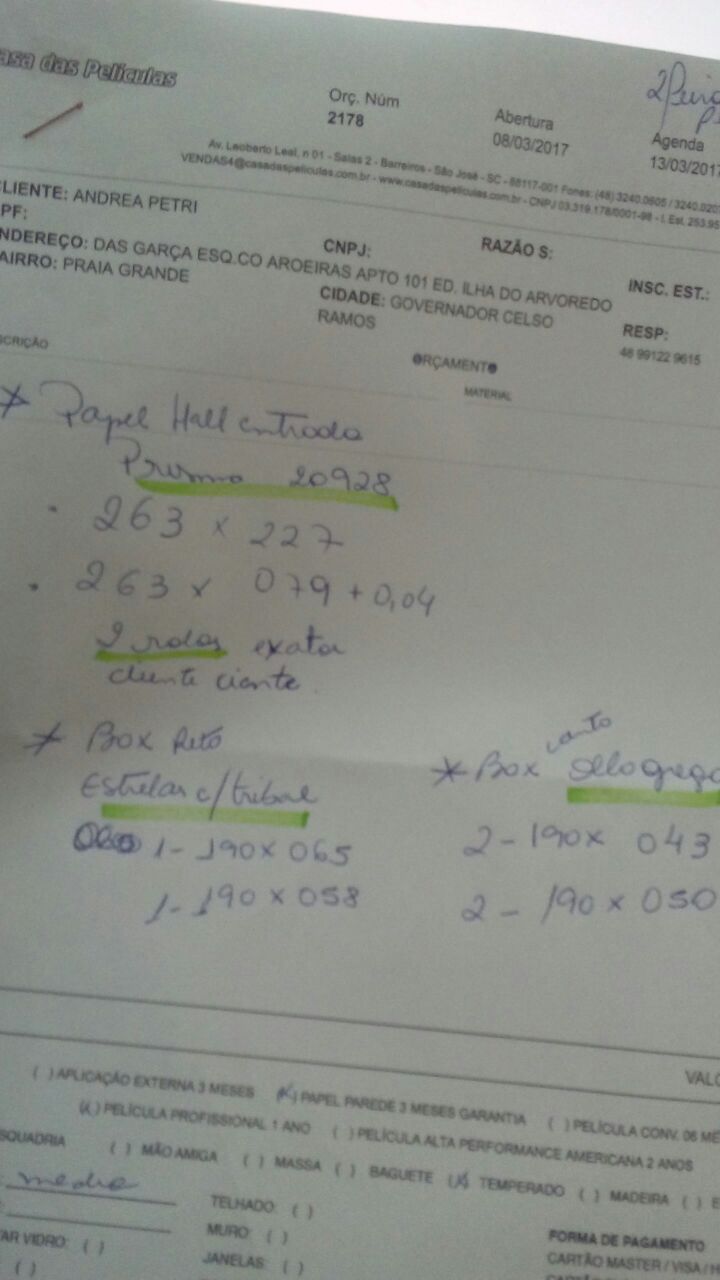 asa das Películas
Orç. Núm
2178
Abertura
08/03/2017
Agenda
13/03/2017
Av. Leoberto Leal, n 01 - Salas 2 - Barreiros - São José - SC - 88117-001 Fones: (48) 3240.0605 / 3240.020
VENDAS4@casadaspeliculas.com.br - www.casadaspeliculas.com.br - CNPJ 03.319.178/0001-98 - I. Est. 253.95
CLIENTE: ANDREA PETRI
PF:
CNPJ:
RAZÃO S:
INSC. EST.:
NDEREÇO: DAS GARÇA ESQ.CO AROEIRAS APTO 101 ED. ILHA DO ARVOREDO
AIRRO: PRAIA GRANDE
CIDADE: GOVERNADOR CELSO
RAMOS
RESP:
48 99122 9615
SCRIÇÃO
ORÇAMENTO
MATERIAL
* Papel Hall entrada
20928
• 263 x 227
• 263 x 079 + 0,04
2 rolos exatos
cliente ciente
* Box Reto
Estrelas c/ tribal
1 - 190 x 065
1 - 190 x 058
* Box canto
2 - 190 x 043
2 - 190 x 050
VALO
( ) APLICAÇÃO EXTERNA 3 MESES (X) PAPEL PAREDE 3 MESES GARANTIA ( ) PELÍCULA CONV. 06 ME
(X) PELÍCULA PROFISSIONAL 1 ANO ( ) PELÍCULA ALTA PERFORMANCE AMERICANA 2 ANOS
SQUADRIA ( ) MÃO AMIGA ( ) MASSA ( ) BAGUETE (X) TEMPERADO ( ) MADEIRA ( ) E
TELHADO: ( )
MURO: ( )
TAR VIDRO: ( )
JANELAS: ( )
FORMA DE PAGAMENTO
CARTÃO MASTER / VISA / H